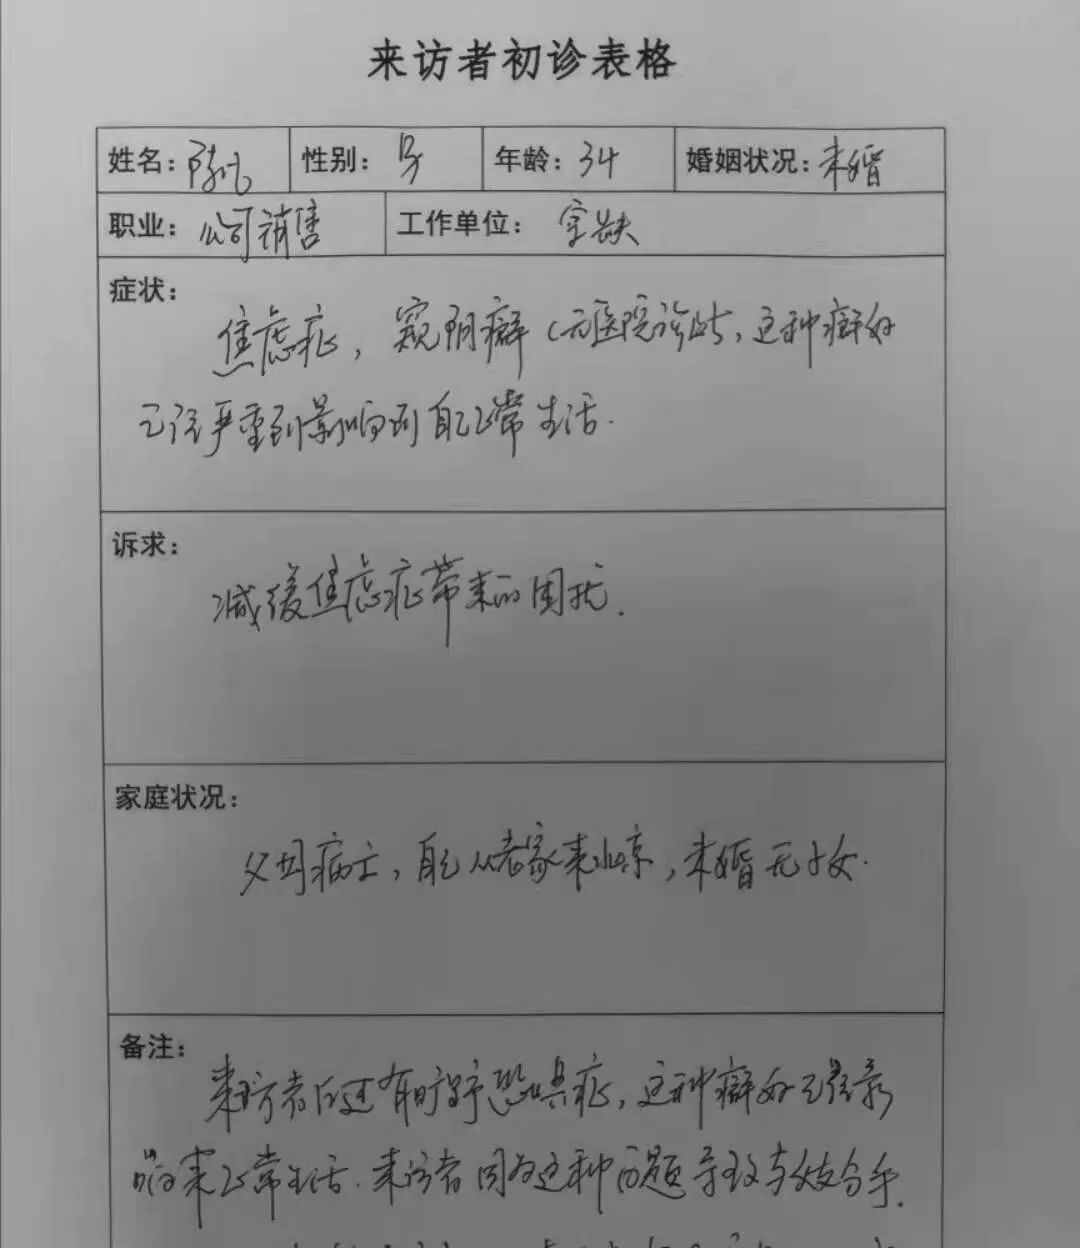 来访者初诊表格
姓名: 陈凡 性别: 男 年龄: 34 婚姻状况: 未婚
职业: 公司销售 工作单位: 空缺
症状:
焦虑症, 窥阴癖 (无医院诊断, 这种癖好
已经严重到影响到自己正常生活.
诉求:
减缓焦虑症带来的困扰.
家庭状况:
父母病亡, 自己从老家来北京, 未婚无子女.
备注:
来访者应还有旷野恐惧症, 这种癖好已经影
响来正常生活. 来访者因为这种问题导致与女友分手.